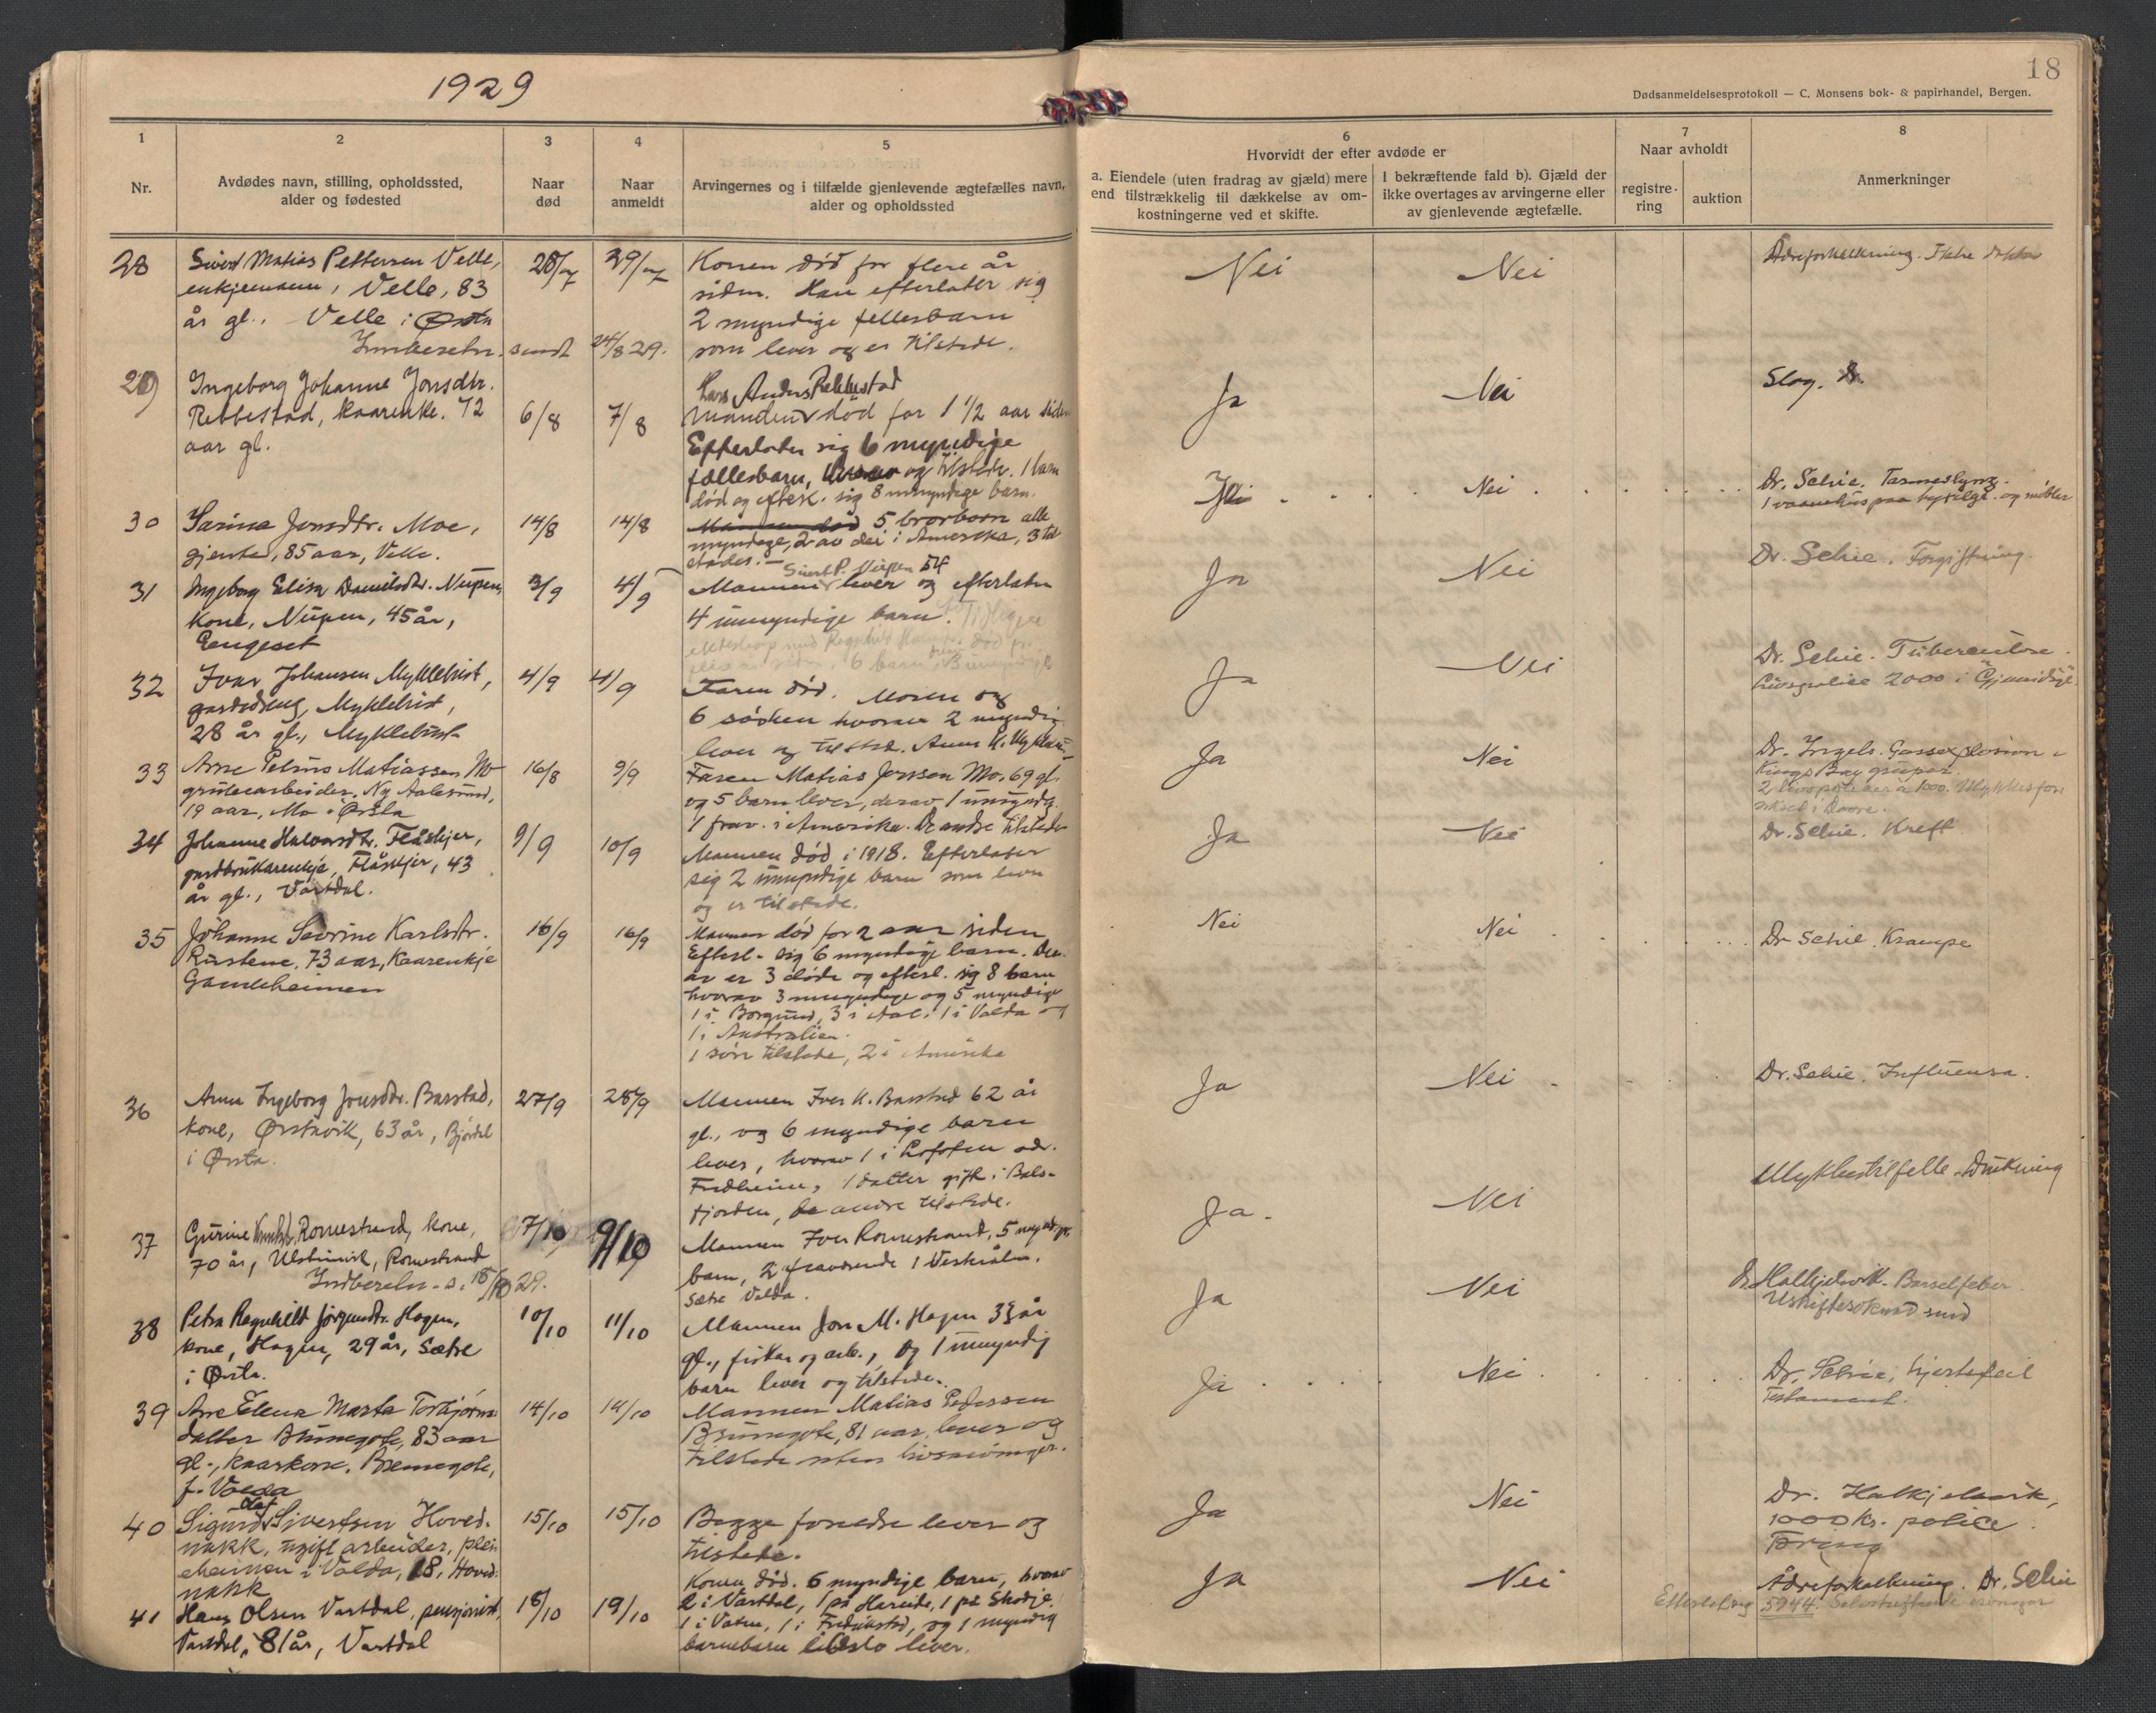 1929
18
Dødsanmeldelsesprotokoll — C. Monsens bok- & papirhandel, Bergen.
1
Nr.
2
Avdødes navn, stilling, opholdssted,
alder og fødested
3
Naar
død
4
Naar
anmeldt
5
Arvingernes og i tilfælde gjenlevende ægtefælles navn,
alder og opholdssted
6
Hvorvidt der efter avdøde er
a. Eiendele (uten fradrag av gjæld) mere
end tilstrækkelig til dækkelse av om-
kostningerne ved et skifte.
I bekræftende fald b). Gjæld der
ikke overtages av arvingerne eller
av gjenlevende ægtefælle.
7
Naar avholdt
registre-
ring
auktion
8
Anmerkninger
28
Sivert Matias Pettersen Velle,
enkjemann, Velle, 83
år gl., Velle i Ørsta
28/7
29/7
sendt 24/8 29.
Konen død for flere år
siden. Han efterlater sig
2 myndige fellesbarn
som lever og er tilstede.
Nei
Nei
Adreforkalkning. Ikke
29
Ingeborg Johanne Jonsdtr.
Rebbestad, kaarenke. 72
aar gl.
6/8
7/8
Lars Anders Rebbestad
Manden død for 1 1/2 aar siden
Efterlater sig 6 myndige
fællesbarn, og tilstede. 1 barn
død og efterl. sig 8 umyndige barn.
Ja
Nei
Slag. Dr.
30
Sarina Jonsdtr. Moe,
gjente, 85 aar, Velle.
14/8
14/8
Mannen død 5 brorborn alle
myndage, 2 av dei i Amerika, 3 til
stades.
Nei
Dr. Schie. Tarmeslyng.
1 vaanehus paa og møbler
31
Ingeborg Elisa Danielsdtr. Nupen,
kone, Nupen, 45 år,
Eengeset
3/9
4/9
Sivert P. Nupen 54
Mannen lever og efterlater
4 umyndige barn.
6 barn
Ja
Nei
Dr. Schie. Forgiftning.
32
Ivar Johansen Myklebust,
gardsdreng, Myklebust,
28 år gl., Myklebust
4/9
4/9
Faren død. Moren og
6 søsken hvorav 2 myndig
lever og tilsted. Anne
Ja
Nei
Dr. Schie. Tuberculose.
Livspolice 2000 i Gjensidige
33
Arne Petrus Matiassen Mo
grubearbeider, Ny Aalesund,
19 aar, Mo i Ørsta
16/8
9/9
Faren Matias Jonsson Mo, 69 gl.
og 5 barn lever, derav 1 umyndig.
1 frav. i Amerika. De andre tilstede
Ja
Nei
Dr. Ingels. Gassexplosion i
Kings Bay gruper.
2 livspoliser a 1000. Ulykkesfor
34
Johanne Halvardtr. Flåskjer,
gardbrukarenkje, Flåskjer, 43
år gl., Vartdal.
9/9
10/9
Mannen død i 1918. Efterlater
sig 2 umyndige barn som lever
og er tilstede.
Ja
Nei
Dr. Schie. Kreft
35
Johanne Severine Karlsdtr.
Rustene, 73 aar, Kaarenkje
Gamleheimen
16/9
16/9
Mannen død for 2 aar siden
Efterl. sig 6 myndige barn. Der-
av er 3 døde og efterl. sig 8 barn
hvorav 3 umyndige og 5 myndige
1 i Borgund, 3 i Aal. 1 i Volda og
1 i Australien.
1 søn tilstede, 2 i Amerika
Nei
Nei
Dr Schie. Krampe
36
Anne Ingeborg Jonsdtr. Barstad,
kone, Ørstavik, 63 år, Bjørdal
i Ørsta.
27/9
28/9
Mannen Iver K. Barstad 62 år
gl., og 6 myndige barn
lever, hvorav 1 i Lofoten adr.
Fredheim, 1 datter gift i Bals-
fjorden, de andre tilstede.
Ja
Nei
Dr. Schie. Influensa.
37
Gurine Romestrand, kone,
70 år, Romestrand
Indbereln. s. 18/10 29.
7/10
9/10
Mannen Iver Romestrand, 5 myndige
barn, 2 fraværende 1
Sætre Volda.
Ja.
Nei
Ulykkestilfelle. Drukning
38
Petra Ragnhild Jørgensdtr. Hagen,
kone, Hagen, 29 år, Sætre
i Ørsta.
10/10
11/10
Mannen Jon M. Hagen 33 år
gl., fisker og arb., og 1 umyndig
barn lever og tilstede.
Ja
Nei
Dr. Halkjelsvik. Barselfeber.
39
Ane Elena Marta Torbjørns-
datter Brunegote, 83 aar
gl., kaarkone. Brunegote,
f. Volda
14/10
14/10
Mannen Matias Pedersen
Brunegote, 81 aar, lever og
tilstede uten livsarvinger.
Ja
Nei
Dr. Schie, hjertefeil
Testament.
40
Olaf
Sigurd Sivertsen Hoved-
nakk, ugift arbeider, plei-
eheimen i Volda, 18, Hoved-
nakk
15/10
15/10
Begge foreldre lever og
tilstede.
Ja
Nei
Dr. Halkjelsvik,
1000 kr. police.
Tæring
41
Hans Olsen Vartdal, pensjonist,
Vartdal, 81 år, Vartdal
18/10
19/10
Konen død. 6 myndige barn, hvorav
2 i Vartdal, 1 på Hareide, 1 på Skodje
1 i Vatne, 1 i Fredrikstad, og 1 myndig
barnebarn i Oslo lever.
Ja
Nei
Ådreforkalkning. Dr. Schie
5944. Selvskiftende arvinger